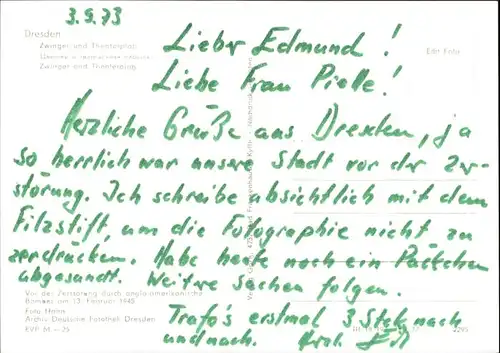 3.9.73
Dresden
Zwinger und Theaterplatz
Zwinger and Theaterplatz
Edi: Foto
Lieber Edmund!
Liebe Frau Pielle!
Herzliche Grüße aus Dresden, ja
so herrlich war unsere Stadt vor der Zer-
störung. Ich schreibe absichtlich mit dem
Filzstift, um die Fotographie nicht zu
zerdrücken. Habe heute noch ein Päckchen
abgesandt. Weitere Sachen folgen.
Vor der Zerstörung durch anglo-amerikanische
Bomber am 13. Februar 1945
Foto Hahn
Archiv Deutsche Fotothek Dresden
EVP
Trafo's erstmal 3 Stck nach
und nach.